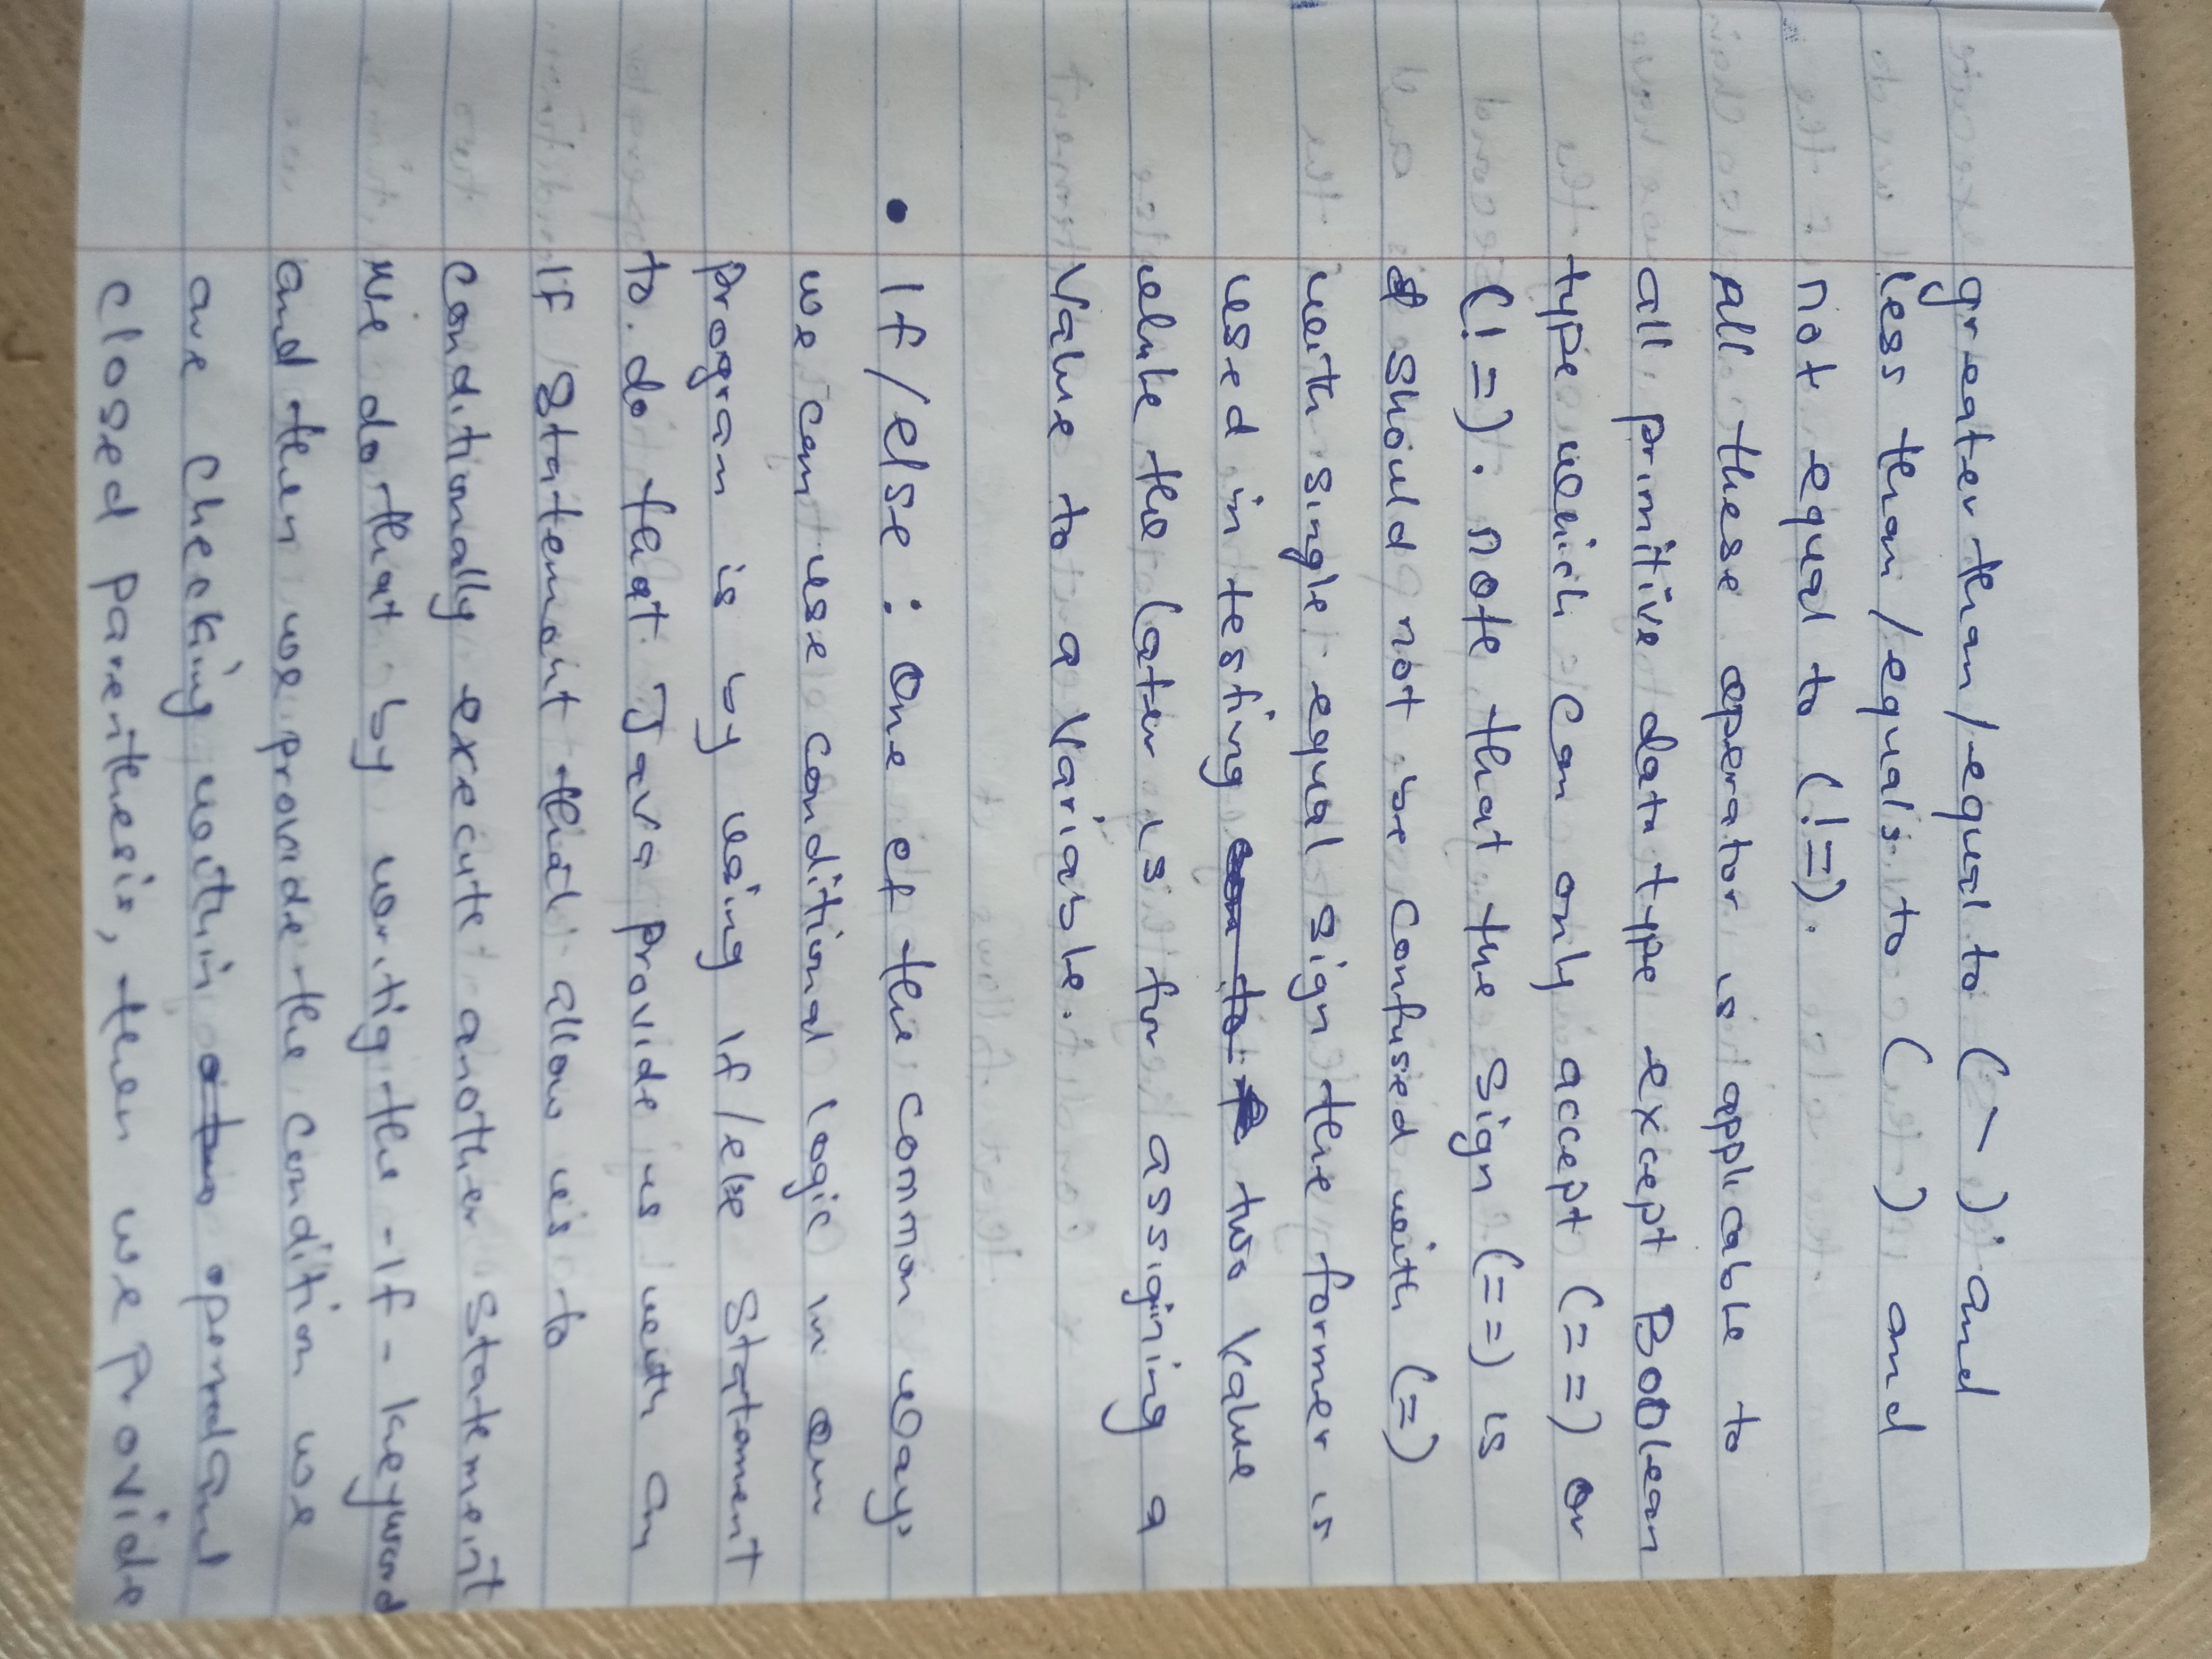 greater than/equal to (>) and
less than/equals to (<) and
not equal to (!=).
All these operator is applicable to
all primitive data type except Boolean
type which can only accept (==) or
(!=). note that the sign (==) is
should not be confused with (=)
with single equal sign the former is
used in testing two value
while the later is for assigining a
value to a variable.
• If/else: One of the common ways
we can use conditional logic in our
program is by using if/else statement
to do that. Java provide us with an
If statement that allow us to
conditionally execute another statement
We do that by writig the -if- keyword
and then we provide the condition we
are checking within operand and
closed parenthesis, then we provide